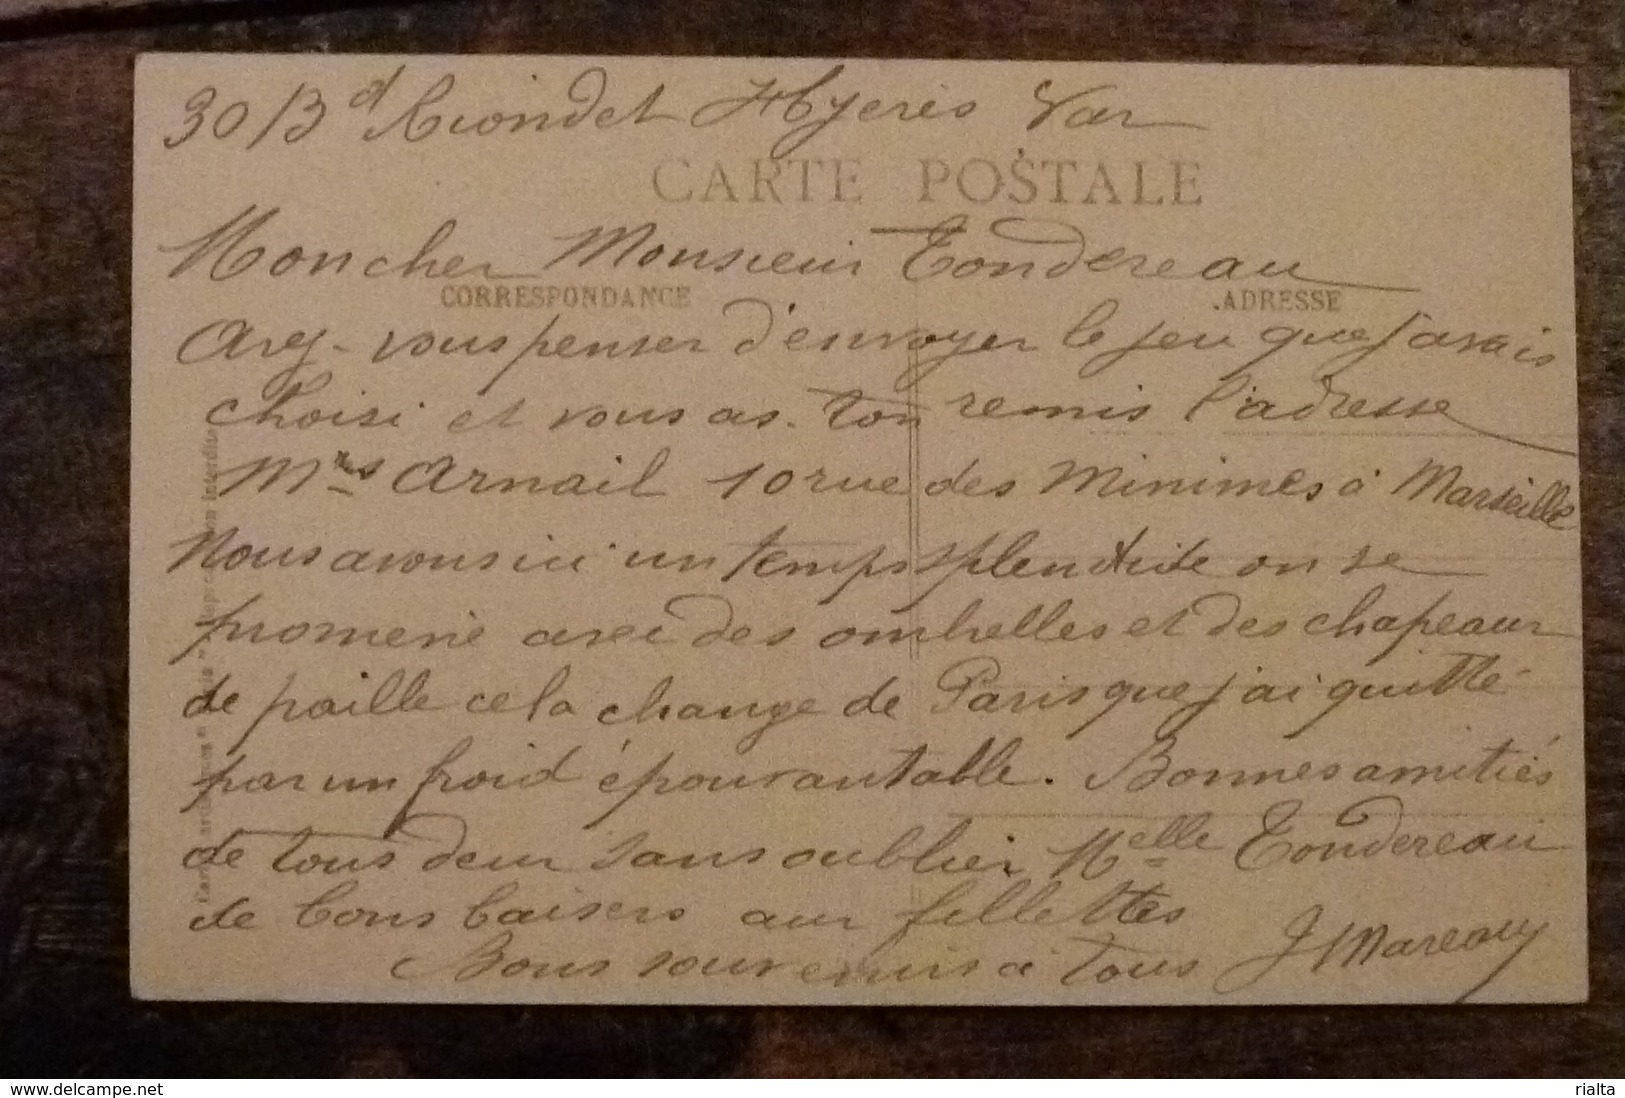 30 Bd Riondet Hyeres Var
CARTE POSTALE
Mon cher Monsieur Tondereau
CORRESPONDANCE
ADRESSE
avez-vous penser d'envoyer le jeu que j'avais
choisi et vous as-ton remis l'adresse
Mrs Arnail 10 rue des Minimes à Marseille
Nous avons ici un temps splendide on se
promene avec des ombrelles et des chapeaux
de paille cela change de Paris que j'ai quitté
par un froid épouvantable. Bonnes amitiés
de tous deux sans oublier Melle Tondereau
de bons baisers aux fillettes
Bons souvenirs à tous J Mareau
Reproduction interdite
www.delcampe.net
rialta